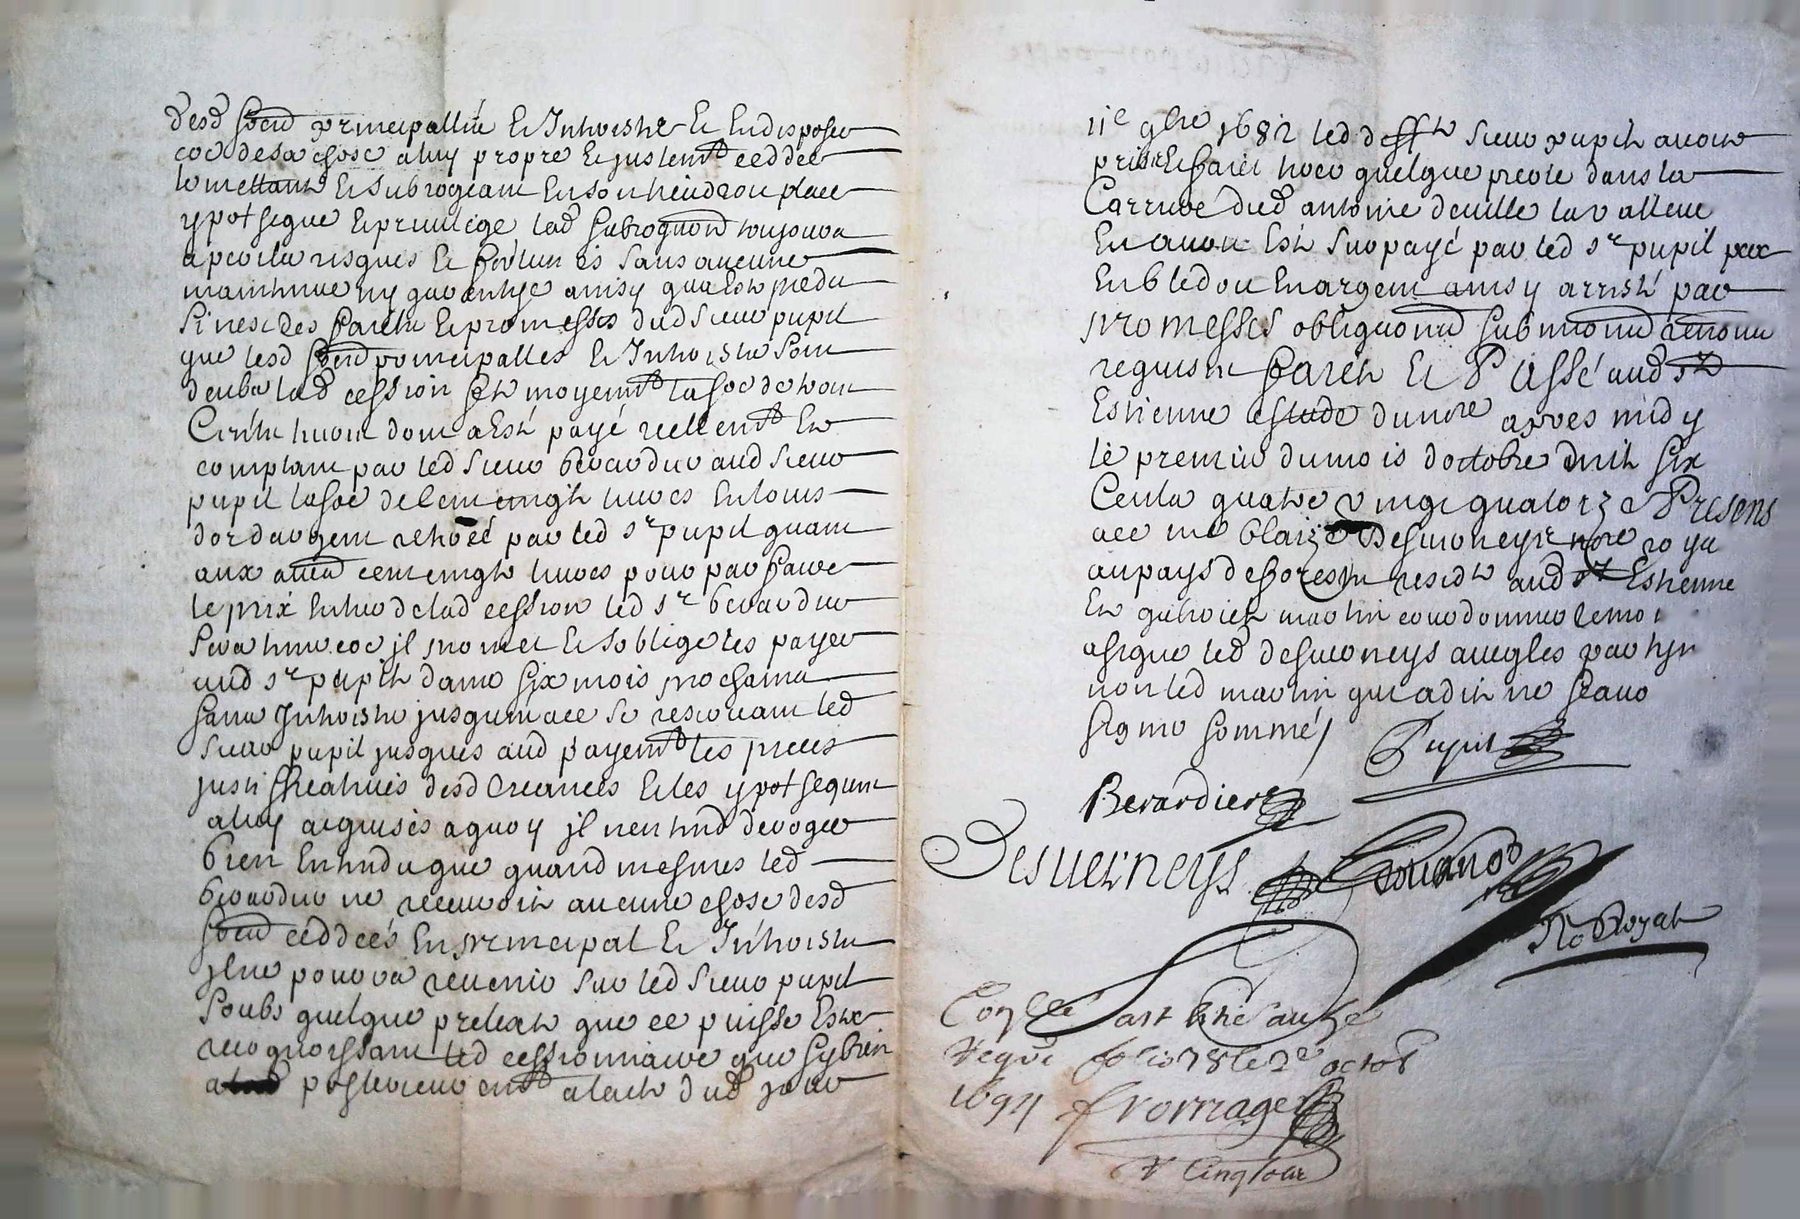 desd sommes principalles et Inthorestz et En disposer
coe de sa chose a luy propre et justemt ceddée
le mettant et subrogeant En son lieu droit place
ypotheque et privilege lad subrogaon toujours
a perils risques et fortunes sans aucune
maintenue ny garentye ainsy qua Esté
sinest des faicts et promesses dud sieur pupil
que lesd sommes principalles et Inthorestz sont
deubz lad cession fete moyent la soe de trois
Cents livres dont a Esté payé reellemt Et
comptant par led sieur berardier aud sieur
pupil la soe de Cent cinqte livres En louis
dor dargent retirée par led sr pupil quant
aux autres cent cinqte livres pour parfaire
le prix Entier de lad cession led sr berardier
sera tenu coe il promet et soblige les payer
aud sr pupil dans six mois prochains
sans Inthorestz jusquen ace se reservant led
sieur pupil jusques aud payemt les pieces
justificatives desd Creances et les ypotheques
a luy acquises a quoy il nentend deroger
bien Entendu que quand mesmes led
berardier ne recevroit aucune chose desd
sommes ceddées En principal et Inthorestz
il ne pourra revenir sur led sieur pupil
soubs quelque pretexte que ce puisse Estre
recognoissant led cessionnaire que sy bien
posterieuremt a lacte dud jour
11e 9bre 1682 led defft sieur pupil avoit
prise Et faict tirer quelque pierre dans la
Carriere dud antoine deville la valleur
En avoit Esté surpayé par led sr pupil
En bled ou En argent ainsy arresté par
promesses obligaons submions renons
requise faict Et Passé aud St
Estienne Estude du nore apres midy
le premier du mois doctobre mil six
Cents quatre vingt quatorze Presens
ace me blaize Desverneys nore royal
au pays de forestz residt aud St Estienne
Et gabriel martin cordonnier
a signe led desverneys avec les partyes
non led martin qui a dit ne scavoir
signer sommé /
Pupil
Berardier
Desverneys
No Royal
Conlle
folio 78 le 2e octob
1694 fromage